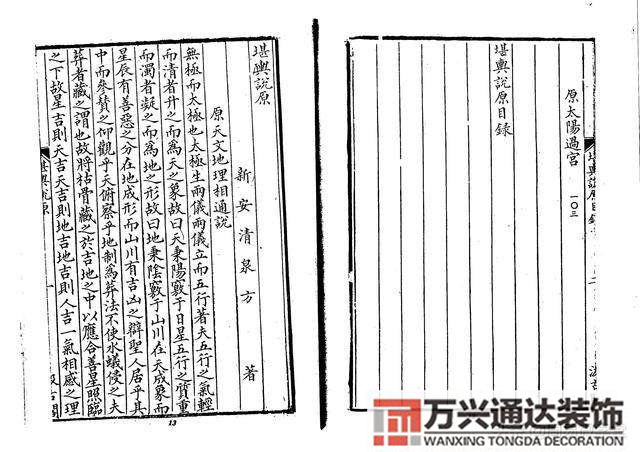 原太陽過宮 一〇三
堪輿說原目錄
堪輿說原
新安清泉方 著
原天文地理相通說
無極而太極也太極生兩儀兩儀立而五行著夫五行之氣輕
而清者升之而為天之象故曰天秉陽竅于日星五行之質重
而濁者凝之而為地之形故曰地秉陰竅于山川在天成象而
星辰有善惡之分在地成形而山川有吉凶之辯聖人居乎其
中而參贊之仰觀乎天俯察乎地制為葬法不使水蟻侵之夫
葬者藏之謂也故將枯骨藏之於吉地之中以應合善星照臨
之下故星吉則天吉天吉則地吉地吉則人吉一氣相感之理
堪輿說原
一
13
万兴通达装饰
WANXING TONGDA DECORATION